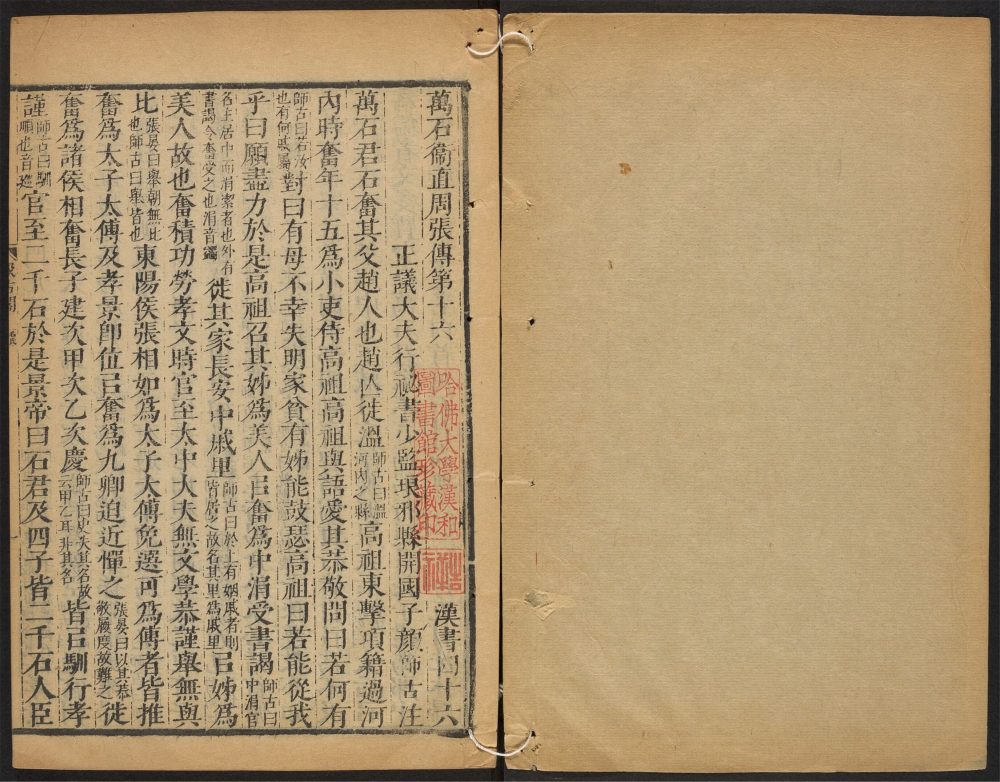 萬石衞直周張傳第十六
漢書四十六
正議大夫行祕書少監琅邪縣開國子顏師古注
萬石君石奮其父趙人也趙亡徙溫師古曰溫河內之縣高祖東擊項籍過河
內時奮年十五爲小吏侍高祖高祖與語愛其恭敬問曰若何有
師古曰若汝也有何戚屬對曰有母不幸失明家貧有姊能鼓瑟高祖曰若能從我
乎曰願盡力於是高祖召其姊爲美人㠯奮爲中涓受書謁師古曰中涓官
名主居中而涓潔者也外有書謁令奮受之也涓音蠲徙其家長安中戚里師古曰於上有姻戚者則皆居之故名其里爲戚里㠯姊爲
美人故也奮積功勞孝文時官至太中大夫無文學恭謹舉無與
比張晏曰舉朝無比也師古曰舉皆也東陽侯張相如爲太子太傅免選可爲傅者皆推
奮爲太子太傅及孝景卽位㠯奮爲九卿迫近憚之張晏曰以其恭敬履度故難之徙
奮爲諸侯相奮長子建次甲次乙次慶師古曰史失其名故云甲乙耳非其名皆㠯馴行孝
謹師古曰馴順也音巡官至二千石於是景帝曰石君及四子皆二千石人臣
哈佛大學漢和
圖書館珍藏印